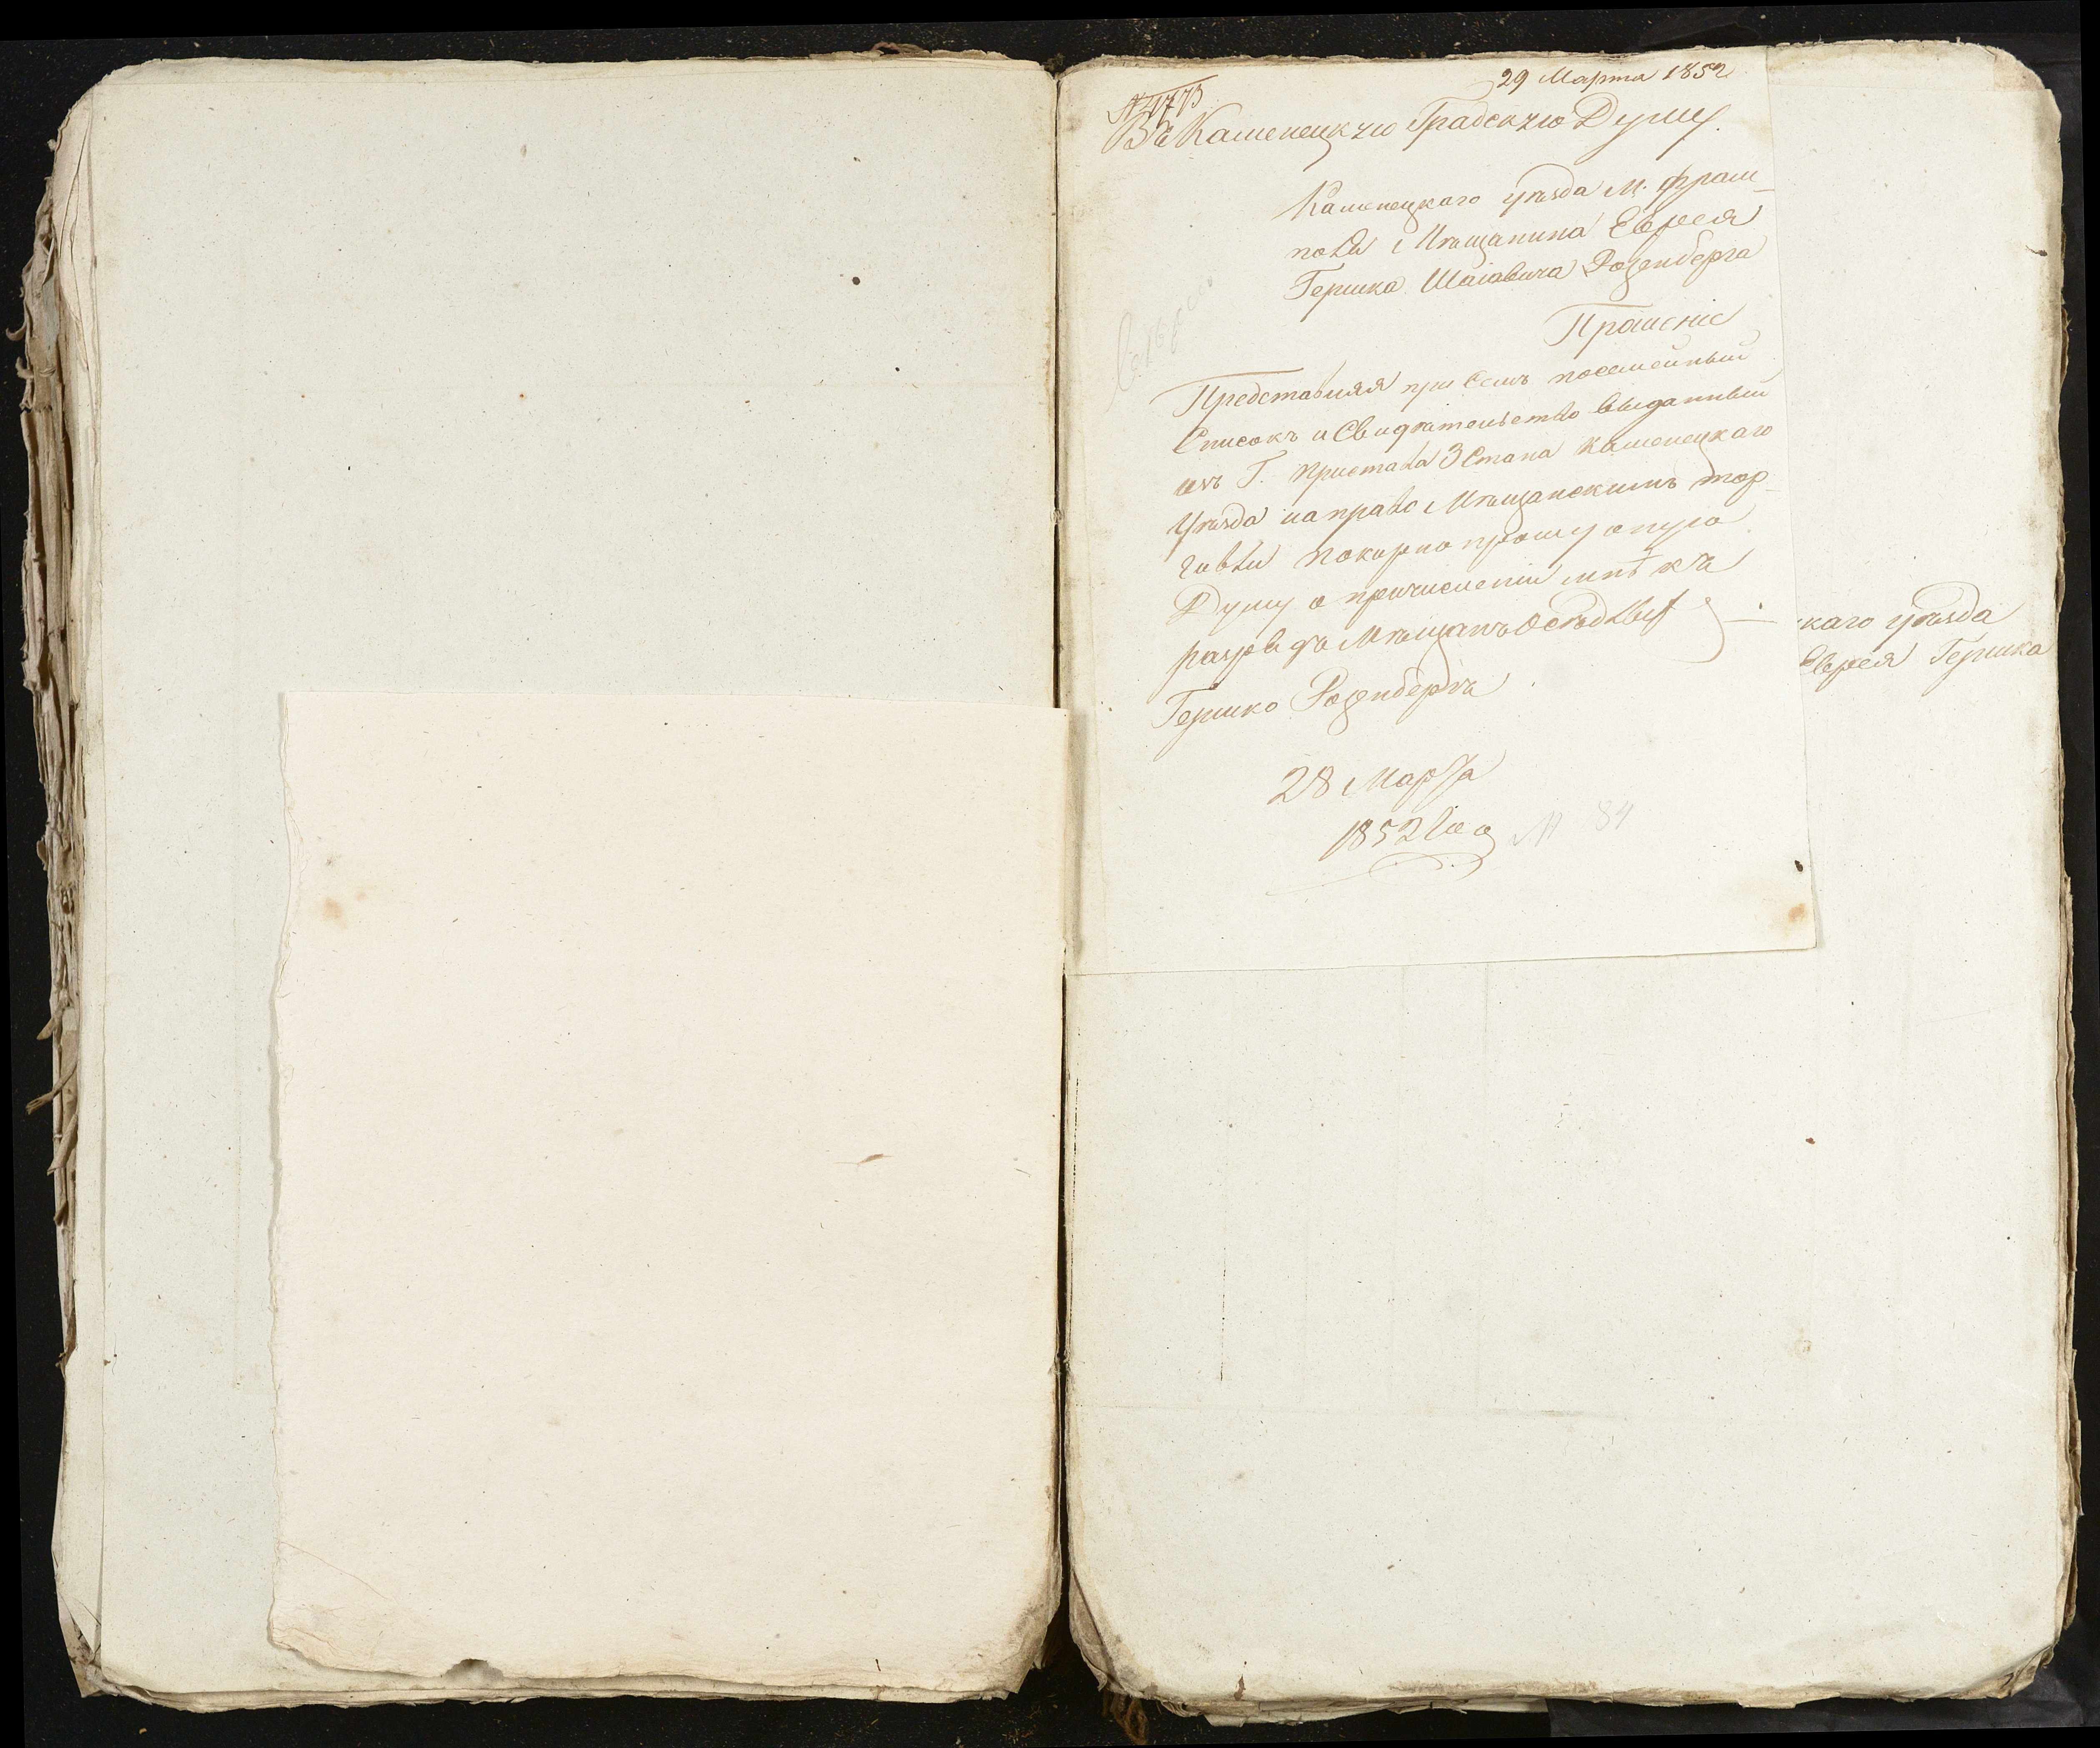 29 Марта 1852
№ 4773
Въ Каменецкую Градскую Думу.
Каменецкаго уѣзда м. Фрам-
поля Мѣщанина Еврея
Гершка Шаіовича Розенберга
Прошеніе
Представляя при семъ посемейный
Списокъ и Свидѣтельство выданный
изъ Г. Пристава 3 Стана Каменецкаго
Уѣзда на право Мѣщанскимъ тор-
говли покорно прошу оную
Думу о причисленіи мнѣ къ
разрядъ Мѣщанъ Осѣдлых
Гершко Розенбергъ
28 Марта
1852 год № 84
каго уѣзда
Еврея Гершка